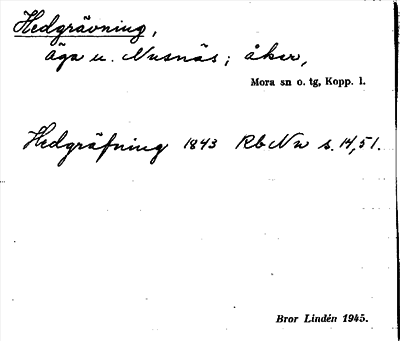 Hedgrävning,
äga u. Nusnäs; åker,
Mora sn o. tg, Kopp. l.
Hedgräfning 1843 Rb Nw s. 14, 51.
Bror Lindén 1945.